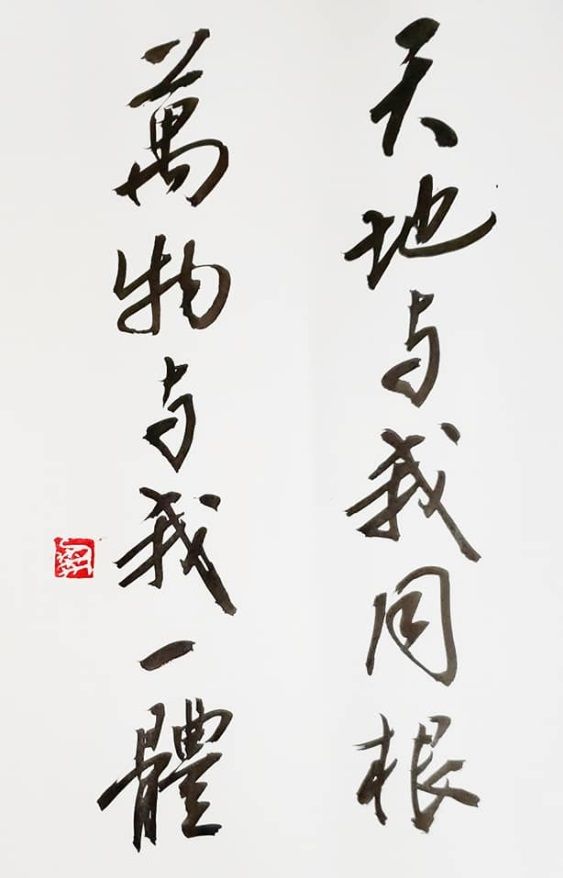 天地与我同根
萬物与我一體